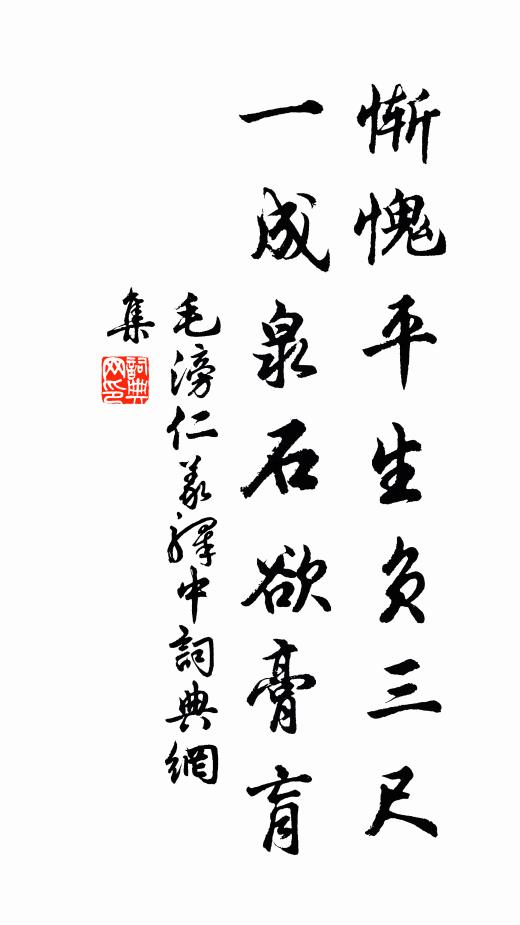 慚愧平生负三尺
一成泉石欲膏肓
毛滂仁義釋中詞典網
集
詞典网印